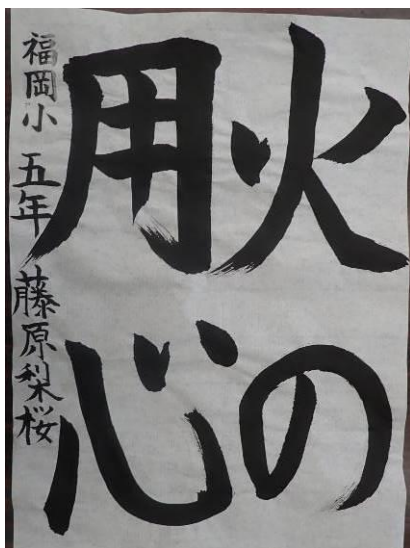 火の
用心
福岡小 五年 藤原梨桜